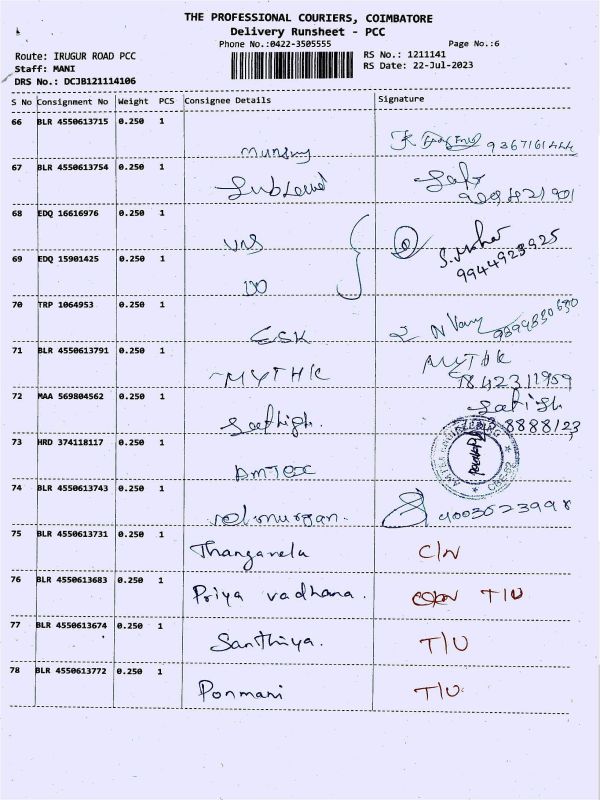 THE PROFESSIONAL COURIERS, COIMBATORE
Delivery Runsheet - PCC
Phone No.:0422-3505555
Page No.:6
Route: IRUGUR ROAD PCC
RS No.: 1211141
Staff: MANI
RS Date: 22-Jul-2023
DRS No.: DCJB121114106
S No Consignment No Weight PCS Consignee Details Signature
66 BLR 4550613715 0.250 1
9367161444
67 BLR 4550613754 0.250 1
68 EDQ 16616976 0.250 1
VNS
9944923925
69 EDQ 15901425 0.250 1
DO
70 TRP 1064953 0.250 1
ESK
71 BLR 4550613791 0.250 1
MYTHK MYTHK
7842311959
72 MAA 569804562 0.250 1
Sathish. Satish
73 HRD 374118117 0.250 1
AMTEX
74 BLR 4550613743 0.250 1
9003623998
75 BLR 4550613731 0.250 1
Thangavelu C/N
76 BLR 4550613683 0.250 1
Priya vadhana. T/U
77 BLR 4550613674 0.250 1
Santhiya. T/U
78 BLR 4550613772 0.250 1
Ponmani T/U